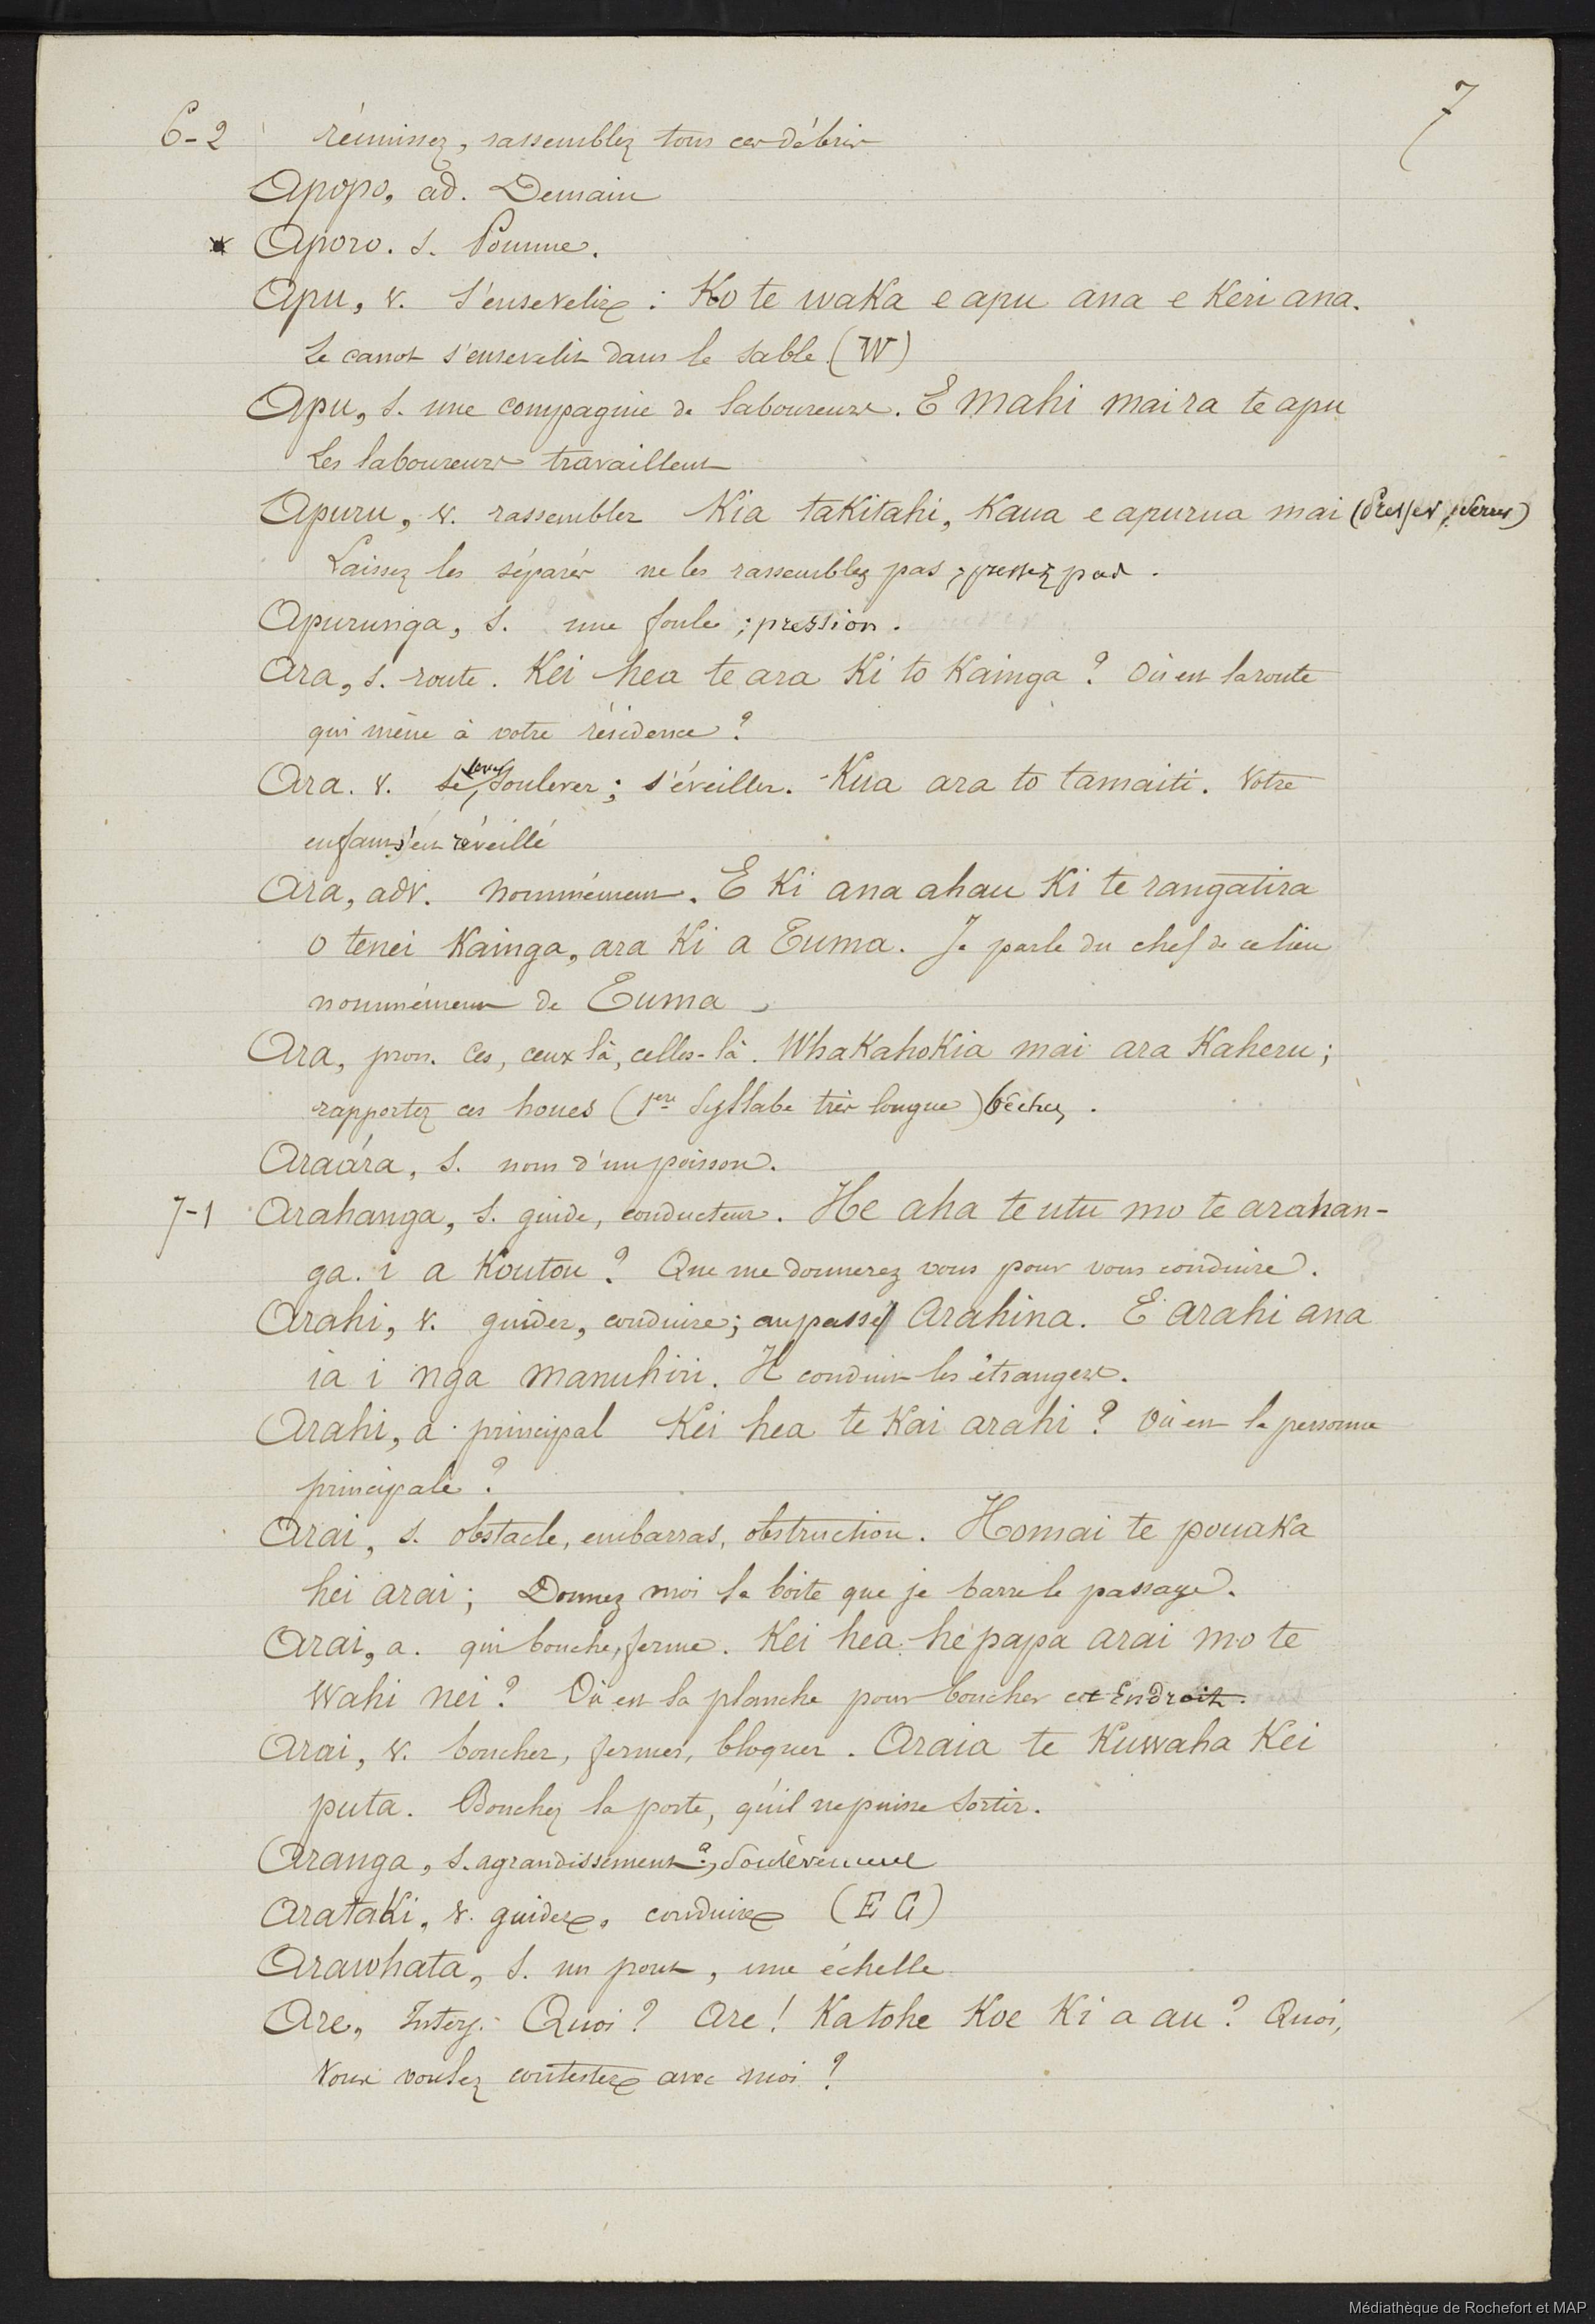 7
6-2 réunissez, rassemblez tous ces débris
Apopo, ad. Demain
* Aporo. s. Pomme.
Apu, v. s'ensevelir : Ko te waka e apu ana e Keri ana.
Le canot s'ensevelit dans le sable (W)
Apu, s. une compagnie de laboureurs. E mahi mai ra te apu
Les laboureurs travaillent
Apuru, v. rassembler Kia takitahi, Kaua e apurua mai (Presser, serrer)
Laissez les séparés ne les rassemblez pas ; pressez pas.
Apurunga, s. une foule ; pression.
Ara, s. route. Kei hea te ara Ki to Kainga ? Où est la route
qui mène à votre résidence ?
Ara. v. se lever, soulever ; s'éveiller. Kua ara to tamaiti. Votre
enfant s'est réveillé
Ara, adv. nommément. E Ki ana ahau Ki te rangatira
o tenei Kainga, ara Ki a Tuma. Je parle du chef de ce lieu
nommément de Tuma.
Ara, pron. Ces, ceux là, celles-là. Whakahokia mai ara Kaheru ;
rapportez ces houes (1ere syllabe très longue) bêches.
Araára, s. nom d'un poisson.
7-1 Arahanga, s. guide, conducteur. He aha te utu mo te arahan-
ga. i a Koutou ? Que me donnerez vous pour vous conduire.
Arahi, v. guider, conduire ; au passif Arahina. E arahi ana
ia i nga manuhiri. Il conduit les étrangers.
Arahi, a. principal Kei hea te Kai arahi ? Où est la personne
principale ?
Arai, s. obstacle, embarras, obstruction. Homai te pouaka
hei arai ; Donnez moi la boite que je barre le passage.
Arai, a. qui bouche, ferme. Kei hea he papa arai mo te
wahi nei ? Où est la planche pour boucher cet Endroit.
Arai, v. boucher, fermer, bloquer. Araia te Kuwaha Kei
puta. Bouchez la porte, qu'il ne puisse sortir.
Aranga, s. agrandissement ?, soulèvement
Arataki, v. guider, conduire (E C)
Arawhata, s. un pont, une échelle
Are, Interj. Quoi ? Are ! Katohe Koe Ki a au ? Quoi,
Vous voulez contester avec moi ?
Médiathèque de Rochefort et MAP